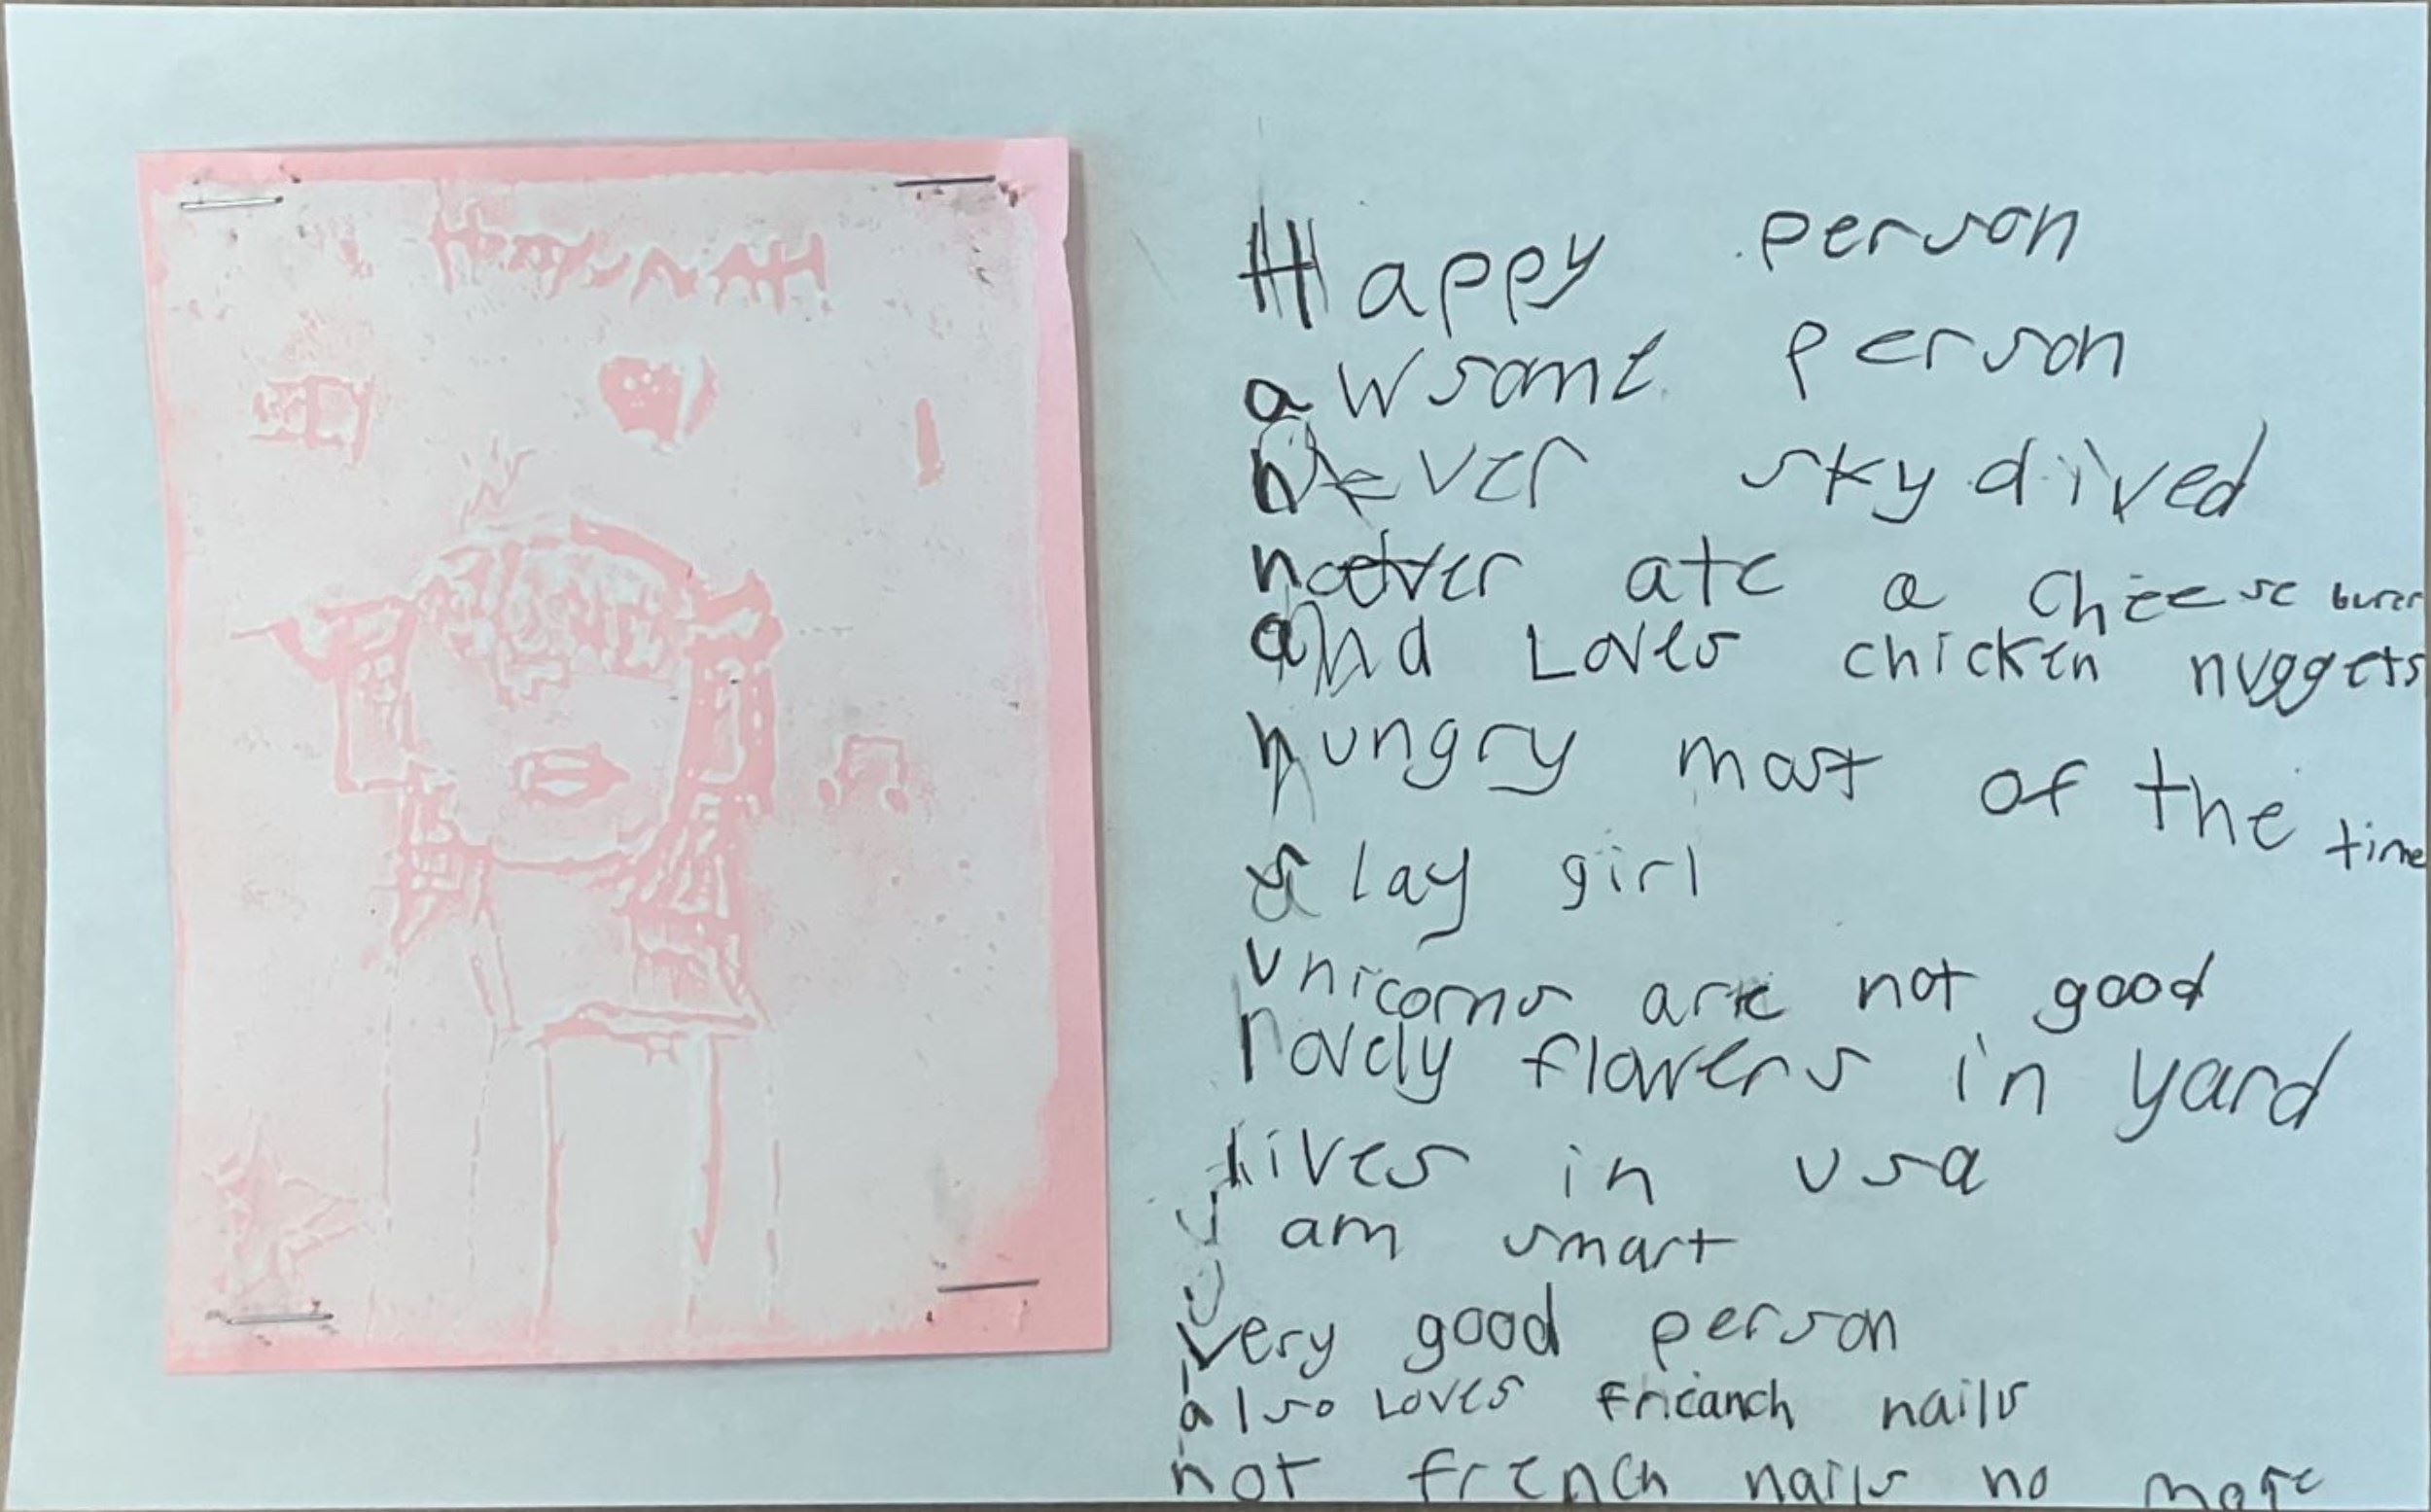 Happy person
awsome person
never sky dived
never ate a cheese burer
and Loves chicken nuggets
hungry most of the time
slay girl
unicorns are not good
lovely flowers in yard
lives in usa
I am smart
very good person
also Loves fricanch nails
not french nails no more